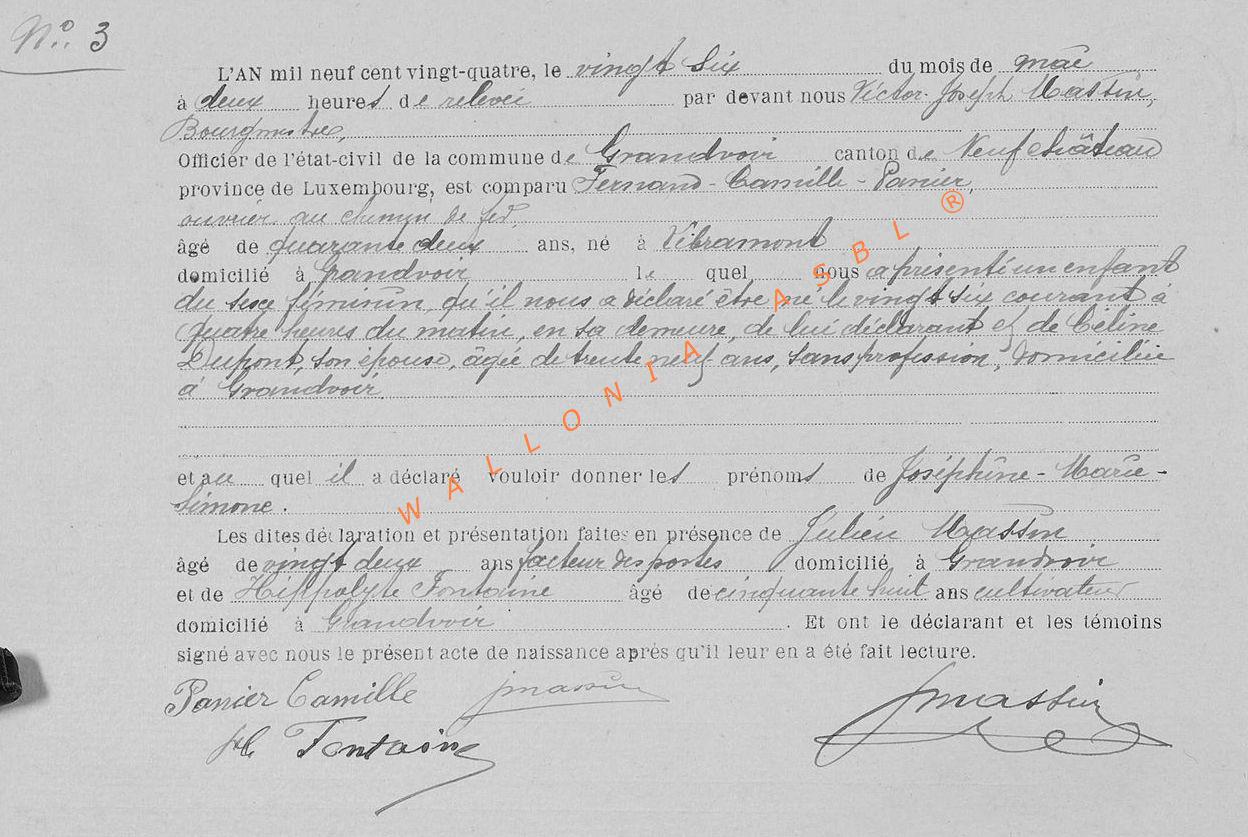 N° 3
L'AN mil neuf cent vingt-quatre, le vingt six du mois de mai
à deux heures de relevée par devant nous Victor-Joseph Massin,
Bourgmestre,
Officier de l'état-civil de la commune de Grandvoir canton de Neufchâteau
province de Luxembourg, est comparu Fernand-Camille-Panier,
ouvrier au chemin de fer,
âgé de quarante deux ans, né à Libramont
domicilié à Grandvoir lequel nous a présenté un enfant
du sexe féminin, qu'il nous a déclaré être né le vingt six courant à
quatre heures du matin, en sa demeure, de lui déclarant et de Céline
Dupont, son épouse, âgée de trente neuf ans, sans profession, domiciliée
à Grandvoir.
et au quel il a déclaré vouloir donner les prénoms de Joséphine-Marie-
Simone.
Les dites déclaration et présentation faites en présence de Julien Massin
âgé de vingt deux ans facteur des postes domicilié à Grandvoir
et de Hippolyte Fontaine âgé de cinquante huit ans cultivateur
domicilié à Grandvoir. Et ont le déclarant et les témoins
signé avec nous le présent acte de naissance après qu'il leur en a été fait lecture.
Panier Camille jmassin
H Fontaine massin
WALLONIA ASBL ®